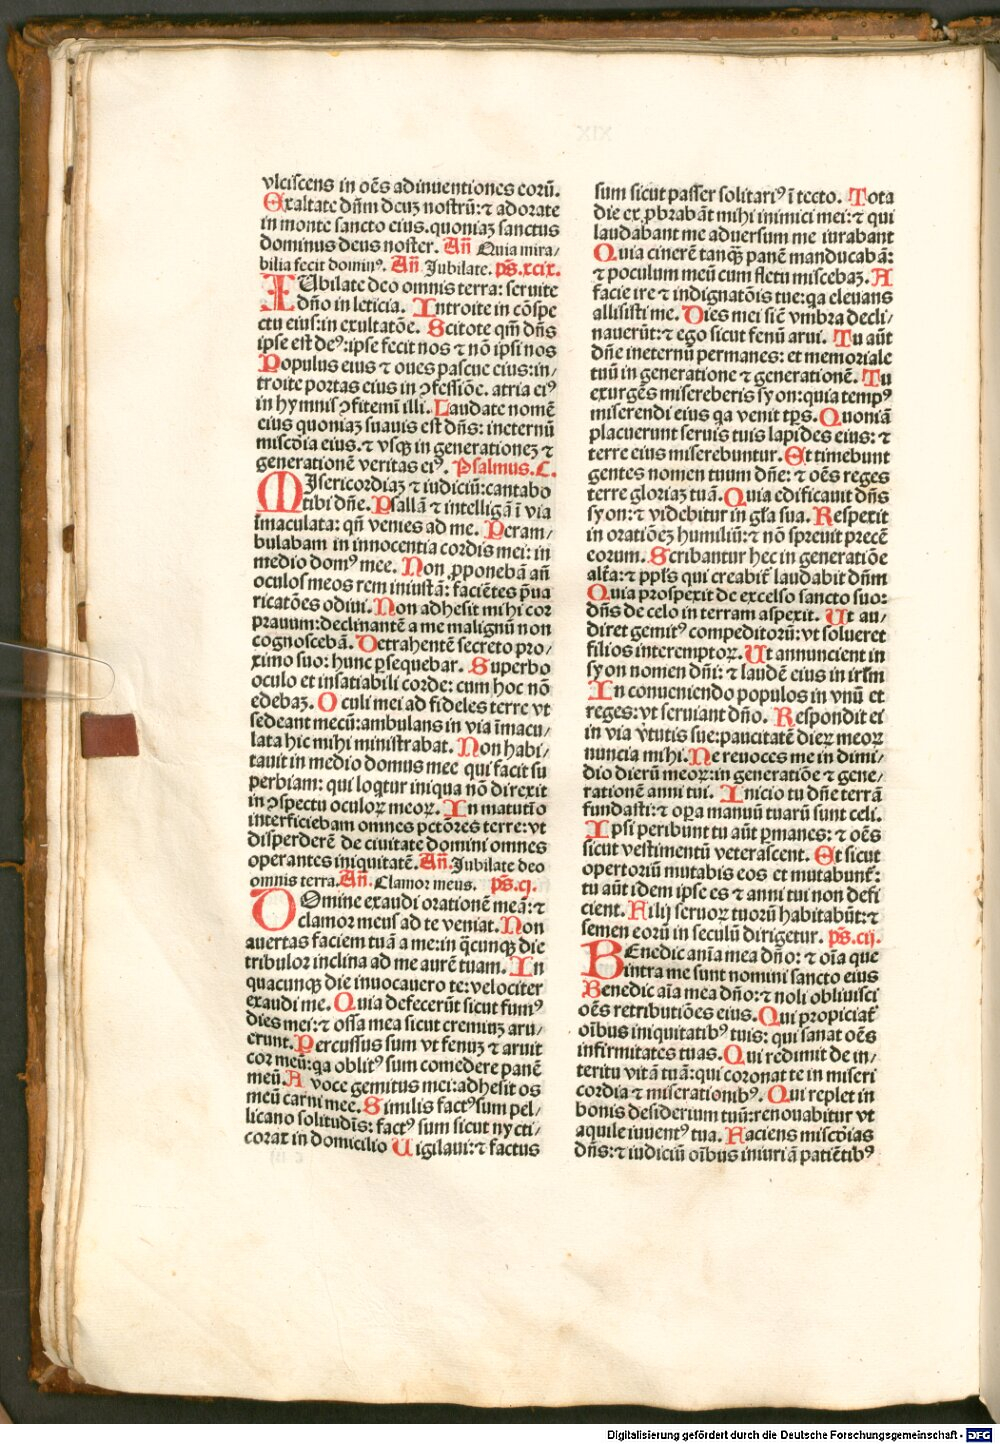 vlciscens in oēs adinuentiones eorū.
Exaltate dn̄m deuʒ nostrū: ⁊ adorate
in monte sancto eius. quoniaʒ sanctus
dominus deus noster. An̄ Quia mira/
bilia fecit dominꝰ. An̄. Jubilate. ps̄. xcix.
IUbilate deo omnis terra: seruite
dn̄o in leticia. Introite in cōspe
ctu eius: in exultatōe. Scitote qm̄ dn̄s
ipse est deꝰ: ipse fecit nos ⁊ nō ipsi nos
Populus eius ⁊ oues pascue eius: in/
troite portas eius in ꝯfessiōe. atria eiꝰ
in hymnis ꝯfitemī illi. Laudate nomē
eius quoniaʒ suauis est dn̄s: ineternū
miscd̄ia eius. ⁊ vsqꝫ in generationeʒ ⁊
generationē veritas eiꝰ. Psalmus. C.
MIsericordiaʒ ⁊ iudiciū: cantabo
tibi dn̄e. Psallā ⁊ intelligā ī via
īmaculata: qn̄ venies ad me. Peram/
bulabam in innocentia cordis mei: in
medio domꝰ mee. Non ꝓponebā an̄
oculos meos rem iniustā: faciētes p̄ua
ricatōes odiui. Non adhesit mihi cor
prauum: declinantē a me malignū non
cognoscebā. Detrahentē secreto pro/
ximo suo: hunc ꝑsequebar. Superbo
oculo et insatiabili corde: cum hoc nō
edebaʒ. Oculi mei ad fideles terre vt
sedeant mecū: ambulans in via īmacu/
lata hic mihi ministrabat. Non habi/
tauit in medio domus mee qui facit su
perbiam: qui loqtur iniqua nō direxit
in ꝯspectu oculoꝝ meoꝝ. In matutīo
interficiebam omnes pctōres terre: vt
disperderē de ciuitate domini omnes
operantes iniquitatē. An̄. Jubilate deo
omnis terra. An̄. Clamor meus. ps̄. cj.
DOmine exaudi orationē meā: ⁊
clamor meus ad te veniat. Non
auertas faciem tuā a me: in q̄cunqꝫ die
tribulor inclina ad me aurē tuam. In
quacunqꝫ die inuocauero te: velociter
exaudi me. Quia defecerūt sicut fumꝰ
dies mei: ⁊ ossa mea sicut cremiuʒ aru/
erunt. Percussus sum vt fenuʒ ⁊ aruit
cor meū: qa oblitꝰ sum comedere panē
meū. A voce gemitus mei: adhesit os
meū carni mee. Similis factꝰ sum pel/
licano solitudīs: factꝰ sum sicut nycti/
corax in domicilio Uigilaui: ⁊ factus
sum sicut passer solitariꝰ ī tecto. Tota
die exꝓbrabāt mihi inimici mei: ⁊ qui
laudabant me aduersum me iurabant
Quia cinerē tanqꝫ panē manducabā:
⁊ poculum meū cum fletu miscebaʒ. A
facie ire ⁊ indignatōis tue: qa eleuans
allisisti me. Dies mei sicē vmbra decli/
nauerūt: ⁊ ego sicut fenū arui. Tu aūt
dn̄e ineternū permanes: et memoriale
tuū in generatione ⁊ generationē. Tu
exurgēs misereberis syon: quia tempꝰ
miserendi eius qa venit tp̄s. Quoniā
placuerunt seruis tuis lapides eius: ⁊
terre eius miserebuntur. Et timebunt
gentes nomen tuum dn̄e: ⁊ oēs reges
terre gloriaʒ tuā. Quia edificauit dn̄s
syon: ⁊ videbitur in gl̄a sua. Respexit
in orationeʒ humiliū: ⁊ nō spreuit precē
eorum. Scribantur hec in generatiōe
alt̄a: ⁊ ppl̄s qui creabit̄ laudabit dn̄m
Quia prospexit de excelso sancto suo:
dn̄s de celo in terram aspexit. Ut au/
diret gemitꝰ compeditorū: vt solueret
filios interemptoꝝ. Ut annuncient in
syon nomen dn̄i: ⁊ laudē eius in irl̄m
In conueniendo populos in vnū et
reges: vt seruiant dn̄o. Respondit ei
in via v̄tutis sue: paucitatē dieꝝ meoꝝ
nuncia mihi. Ne reuoces me in dimi/
dio dierū meoꝝ: in generatiōe ⁊ gene/
rationē anni tui. Inicio tu dn̄e terrā
fundasti: ⁊ oꝑa manuū tuarū sunt celi.
Ipsi peribunt tu aūt ꝑmanes: ⁊ oēs
sicut vestimentū veterascent. Et sicut
opertoriū mutabis eos et mutabunt̄:
tu aūt idem ipse es ⁊ anni tui non defi
cient. Filij seruoꝝ tuorū habitabūt: ⁊
semen eorū in seculū dirigetur. ps̄. cij.
BEnedic anīa mea dn̄o: ⁊ oīa que
intra me sunt nomini sancto eius
Benedic aīa mea dn̄o: ⁊ noli obliuisci
oēs retributiōes eius. Qui propiciat̄
oībus iniquitatibꝰ tuis: qui sanat oēs
infirmitates tuas. Qui redimit de in/
teritu vitā tuā: qui coronat te in miseri
cordia ⁊ miserationibꝰ. Qui replet in
bonis desiderium tuū: renouabitur vt
aquile iuuentꝰ tua. Faciens miscōias
dn̄s: ⁊ iudiciū oībus iniuriā patiētibꝰ
Digitalisierung gefördert durch die Deutsche Forschungsgemeinschaft - DFG